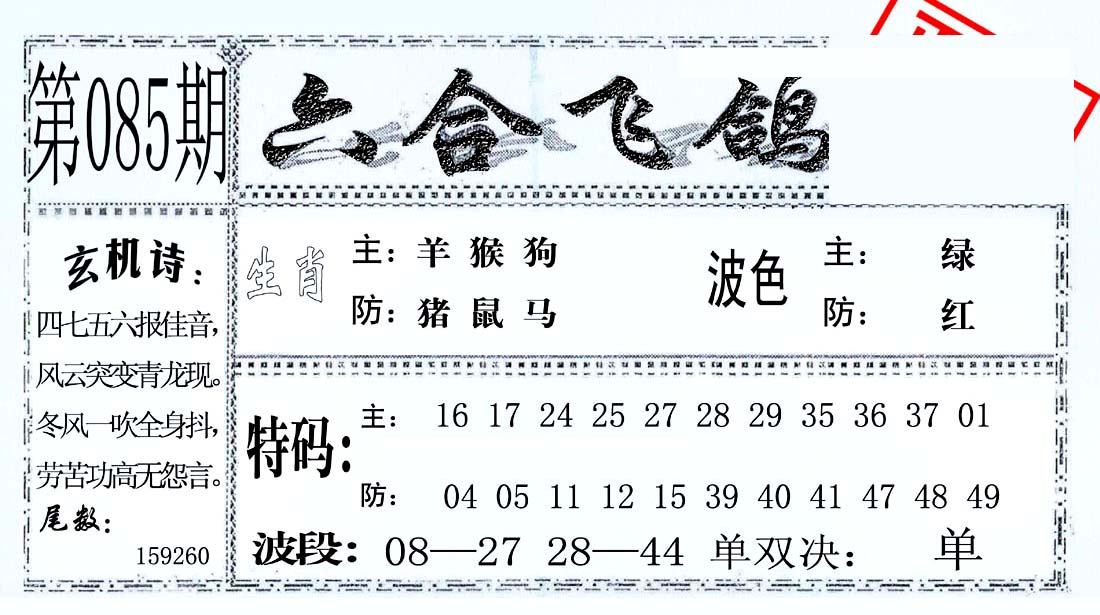 第085期
六合飞鸽
玄机诗：
四七五六报佳音，
风云突变青龙现。
冬风一吹全身抖，
劳苦功高无怨言。
尾数：
159260
生肖
主：羊 猴 狗
防：猪 鼠 马
波色
主： 绿
防： 红
特码：
主： 16 17 24 25 27 28 29 35 36 37 01
防： 04 05 11 12 15 39 40 41 47 48 49
波段：08—27 28—44 单双决： 单